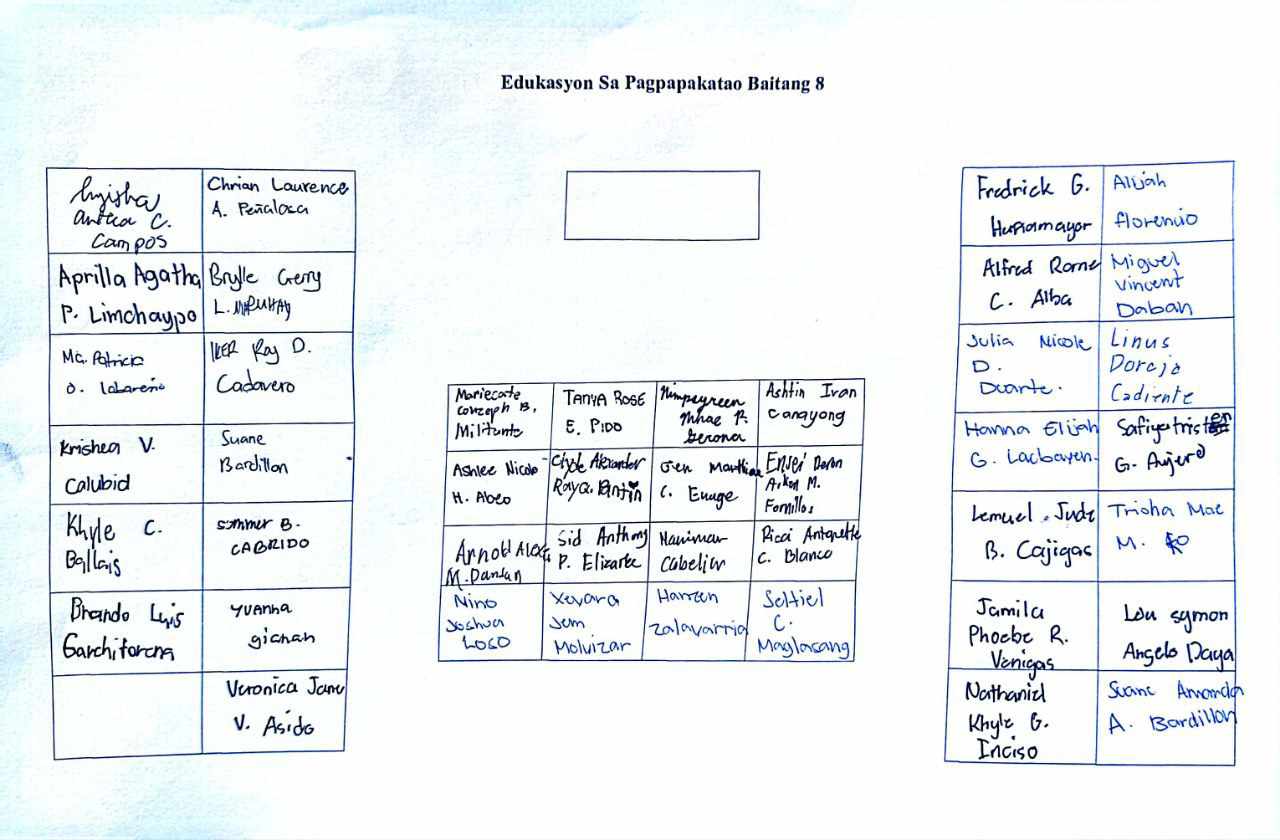 Edukasyon Sa Pagpapakatao Baitang 8
C.
Campos
Chrian Laurence
A. Peñalosa
Aprilla Agatha
P. Limchaypo
Brylle Gerry
L.
Ma. Patricia
D.
IKER Ray D.
Cadavero
Krishea V.
Calubid
Suane
Bardillon
Khyle C.
Ballais
Sommer B.
CABRIDO
Brando Luis
Garchitorena
Yuanna
gianan
Veronica Jane
V. Asido
Mariecate
B.
Militante
TANYA ROSE
E. PIDO
Mhae P.
Gerona
Ashtin Ivan
Canayong
Ashlee Nicole
H. Abeo
Clyde Alexander
Gen
C.
M.
Fornillos
Arnold
M.
Sid Anthony
P.
Cabelin
Ricci Antonette
C. Blanco
Nino
Joshua
LOSO
Xevara
Jem
Molvizar
Hanzen
Zalavarria
Seltiel
C.
Maglasang
Fredrick G.
Alijah
florencio
Alfred Rome
C. Alba
Miguel
Vincent
Daban
Julia Nicole
D.
Duarte.
Linus
Dorejo
Cadiente
Hanna Elijah
G. Lacbayen.
G.
Lemuel Jude
B. Cajigas
Trisha Mae
M. Ko
Jamila
Phoebe R.
Venigas
Lou symon
Angelo Daya
Nathaniel
Khyle G.
Inciso
Suane Amanda
A. Bardillon